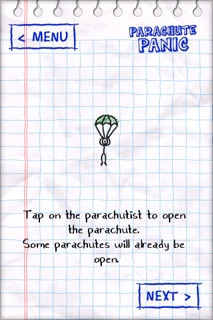 < MENU
PARACHUTE
PANIC
Tap on the parachutist to open
the parachute.
Some parachutes will already be
open.
NEXT >